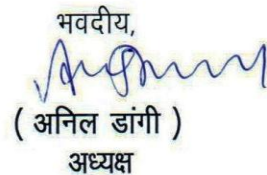 भवदीय,
( अनिल डांगी )
अध्यक्ष